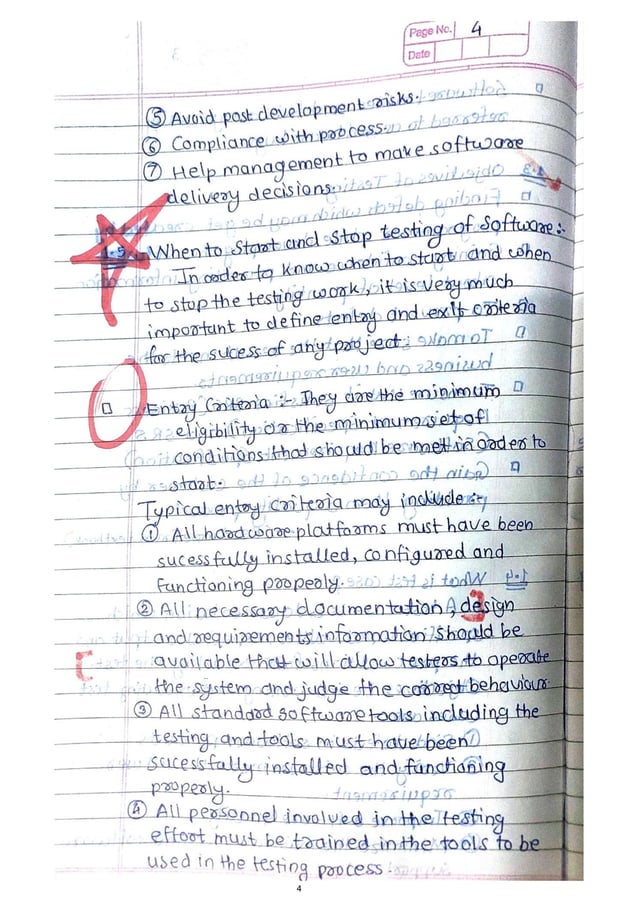 Page No. 4
Date
⑤ Avoid post development risks.
⑥ Compliance with process.
⑦ Help management to make software
delivery decisions.
1.5 When to Start and Stop testing of Software:-
In order to know when to start and when
to stop the testing work, it is very much
important to define entry and exit criteria
for the sucess of any project.
Entry Criteria :- They are the minimum
eligibility or the minimum set of
conditions that should be met in order to
start.
Typical entry criteria may include :-
① All hardware platforms must have been
sucessfully installed, configured and
functioning properly.
② All necessary documentation, design
and requirements information should be
available that will allow testers to operate
the system and judge the correct behaviour
③ All standard software tools including the
testing and tools must have been
sucessfully installed and functioning
properly.
④ All personnel involved in the testing
effort must be trained in the tools to be
used in the testing process.
4